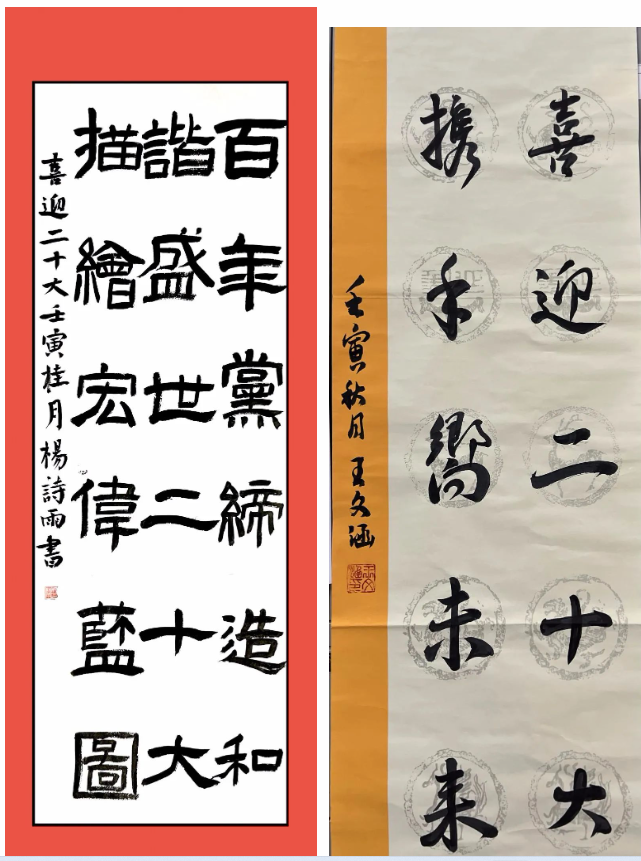 百年黨締造和
諧盛世二十大
描繪宏偉藍圖
喜迎二十大壬寅桂月楊詩雨書
喜迎二十大
携手嚮未来
壬寅秋月王文涵